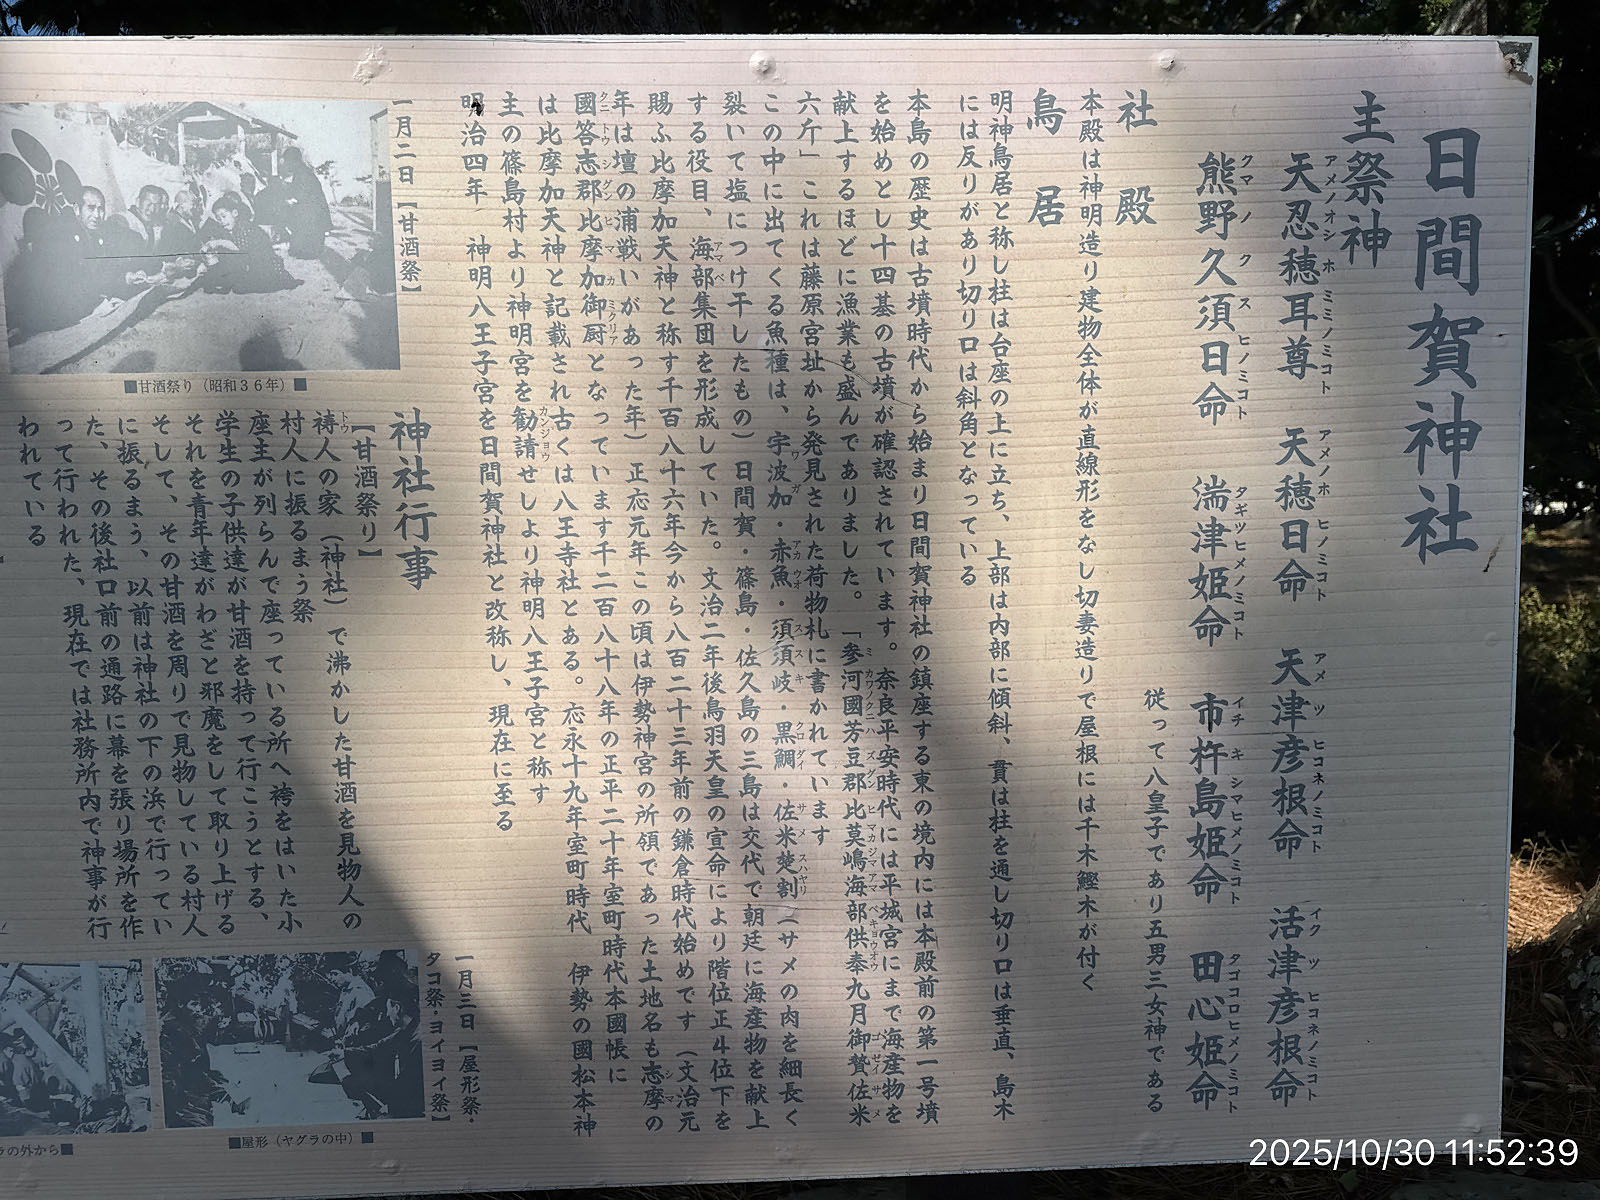 日間賀神社
主祭神
天忍穂耳尊　天穂日命　天津彦根命　活津彦根命
アメノオシホミミノミコト　アメノホヒノミコト　アメツヒコネノミコト　イクツヒコネノミコト
熊野久須日命　湍津姫命　市杵島姫命　田心姫命
クマノクスヒノミコト　タギツヒメノミコト　イチキシマヒメノミコト　タゴコロヒメノミコト
従って八皇子であり五男三女神である
社殿
本殿は神明造り建物全体が直線形をなし切妻造りで屋根には千木鰹木が付く
鳥居
明神鳥居と称し柱は台座の上に立ち、上部は内部に傾斜、貫は柱を通し切り口は垂直、島木
には反りがあり切り口は斜角となっている
本島の歴史は古墳時代から始まり日間賀神社の鎮座する東の境内には本殿前の第一号墳
を始めとし十四基の古墳が確認されています。奈良平安時代には平城宮にまで海産物を
献上するほどに漁業も盛んでありました。「参河國芳豆郡比莫嶋海部供奉九月御贄佐米
ミカワノクニハズグンヒマカジマアマベキョウオウ　ゴゼイサメ
六斤」これは藤原宮址から発見された荷物札に書かれています
この中に出てくる魚種は、宇波加・赤魚・須須岐・黒鯛・佐米楚割（サメの肉を細長く
ワガ　アカウオ　ススキ　クロダイ　サメスハヤリ
裂いて塩につけ干したもの）日間賀・篠島・佐久島の三島は交代で朝廷に海産物を献上
する役目、海部集団を形成していた。文治二年後鳥羽天皇の宣命により階位正4位下を
アマベ
賜ふ比摩加天神と称す千百八十六年今から八百二十三年前の鎌倉時代始めです（文治元
年は壇の浦戦いがあった年）正応元年この頃は伊勢神宮の所領であった土地名も志摩の
シマ
國答志郡比摩加御厨となっています千二百八十八年の正平二十年室町時代本國帳に
クニトウシグンヒマカミクリア
は比摩加天神と記載され古くは八王寺社とある。応永十九年室町時代　伊勢の國松本神
主の篠島村より神明宮を勧請せしより神明八王子宮と称す
カンジョウ
明治四年　神明八王子宮を日間賀神社と改称し、現在に至る
一月二日［甘酒祭］
■甘酒祭り（昭和36年）■
神社行事
［甘酒祭り］
祷人の家（神社）で沸かした甘酒を見物人の
トウ
村人に振るまう祭
座主が列らんで座っている所へ袴をはいた小
学生の子供達が甘酒を持って行こうとする、
それを青年達がわざと邪魔をして取り上げる
そして、その甘酒を周りで見物している村人
に振るまう、以前は神社の下の浜で行ってい
た、その後社口前の通路に幕を張り場所を作
って行われた、現在では社務所内で神事が行
われている
一月三日［屋形祭・
タコ祭・ヨイヨイ祭］
■屋形（ヤグラの中）■
ラの外から■
2025/10/30 11:52:39